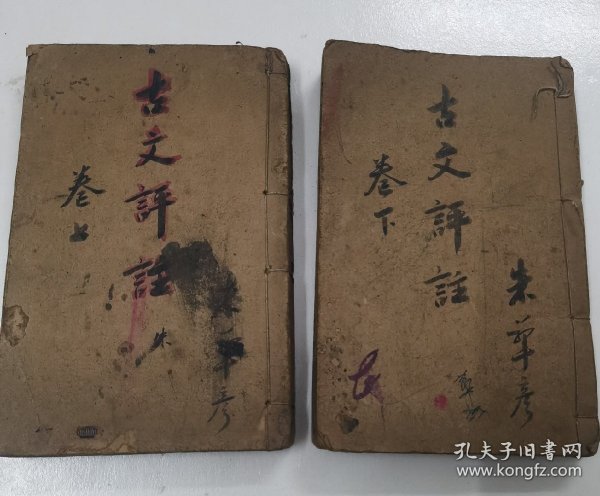 古文評註
卷上
朱
古文評註
卷下
朱華彦
孔夫子旧书网
www.kongfz.com